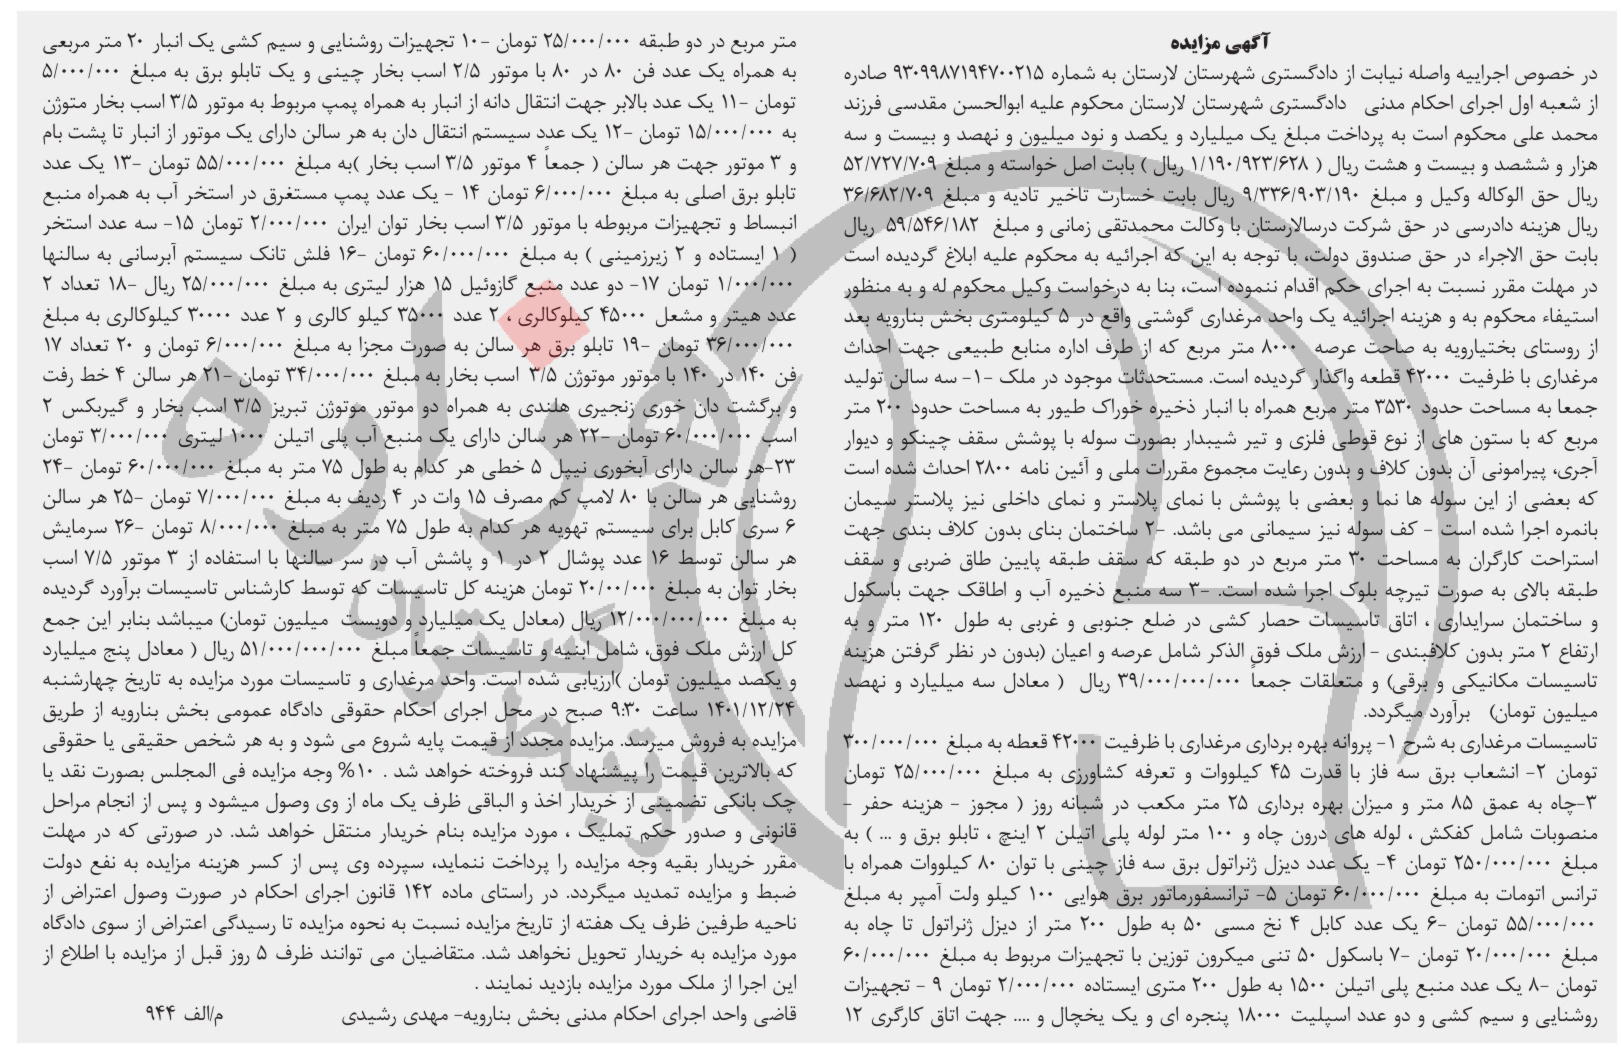 آگهی مزایده
در خصوص اجراییه واصله نیابت از دادگستری شهرستان لارستان به شماره ۹۳۰۹۹۸۷۱۹۴۷۰۰۲۱۵ صادره
از شعبه اول اجرای احکام مدنی دادگستری شهرستان لارستان محکوم علیه ابوالحسن مقدسی فرزند
محمد علی محکوم است به پرداخت مبلغ یک میلیارد و یکصد و نود میلیون و نهصد و بیست و سه
هزار و ششصد و بیست و هشت ریال ( ۱/۱۹۰/۹۲۳/۶۲۸ ریال ) بابت اصل خواسته و مبلغ ۵۲/۷۲۷/۷۰۹
ریال حق الوکاله وکیل و مبلغ ۹/۳۳۶/۹۰۳/۱۹۰ ریال بابت خسارت تاخیر تادیه و مبلغ ۳۶/۶۸۲/۷۰۹
ریال هزینه دادرسی در حق شرکت درسالارستان با وکالت محمدتقی زمانی و مبلغ ۵۹/۵۴۶/۱۸۲ ریال
بابت حق الاجراء در حق صندوق دولت، با توجه به این که اجرائیه به محکوم علیه ابلاغ گردیده است
در مهلت مقرر نسبت به اجرای حکم اقدام ننموده است، بنا به درخواست وکیل محکوم له و به منظور
استیفاء محکوم به و هزینه اجرائیه یک واحد مرغداری گوشتی واقع در ۵ کیلومتری بخش بنارویه بعد
از روستای بختیارویه به صاحت عرصه ۸۰۰۰ متر مربع که از طرف اداره منابع طبیعی جهت احداث
مرغداری با ظرفیت ۴۲۰۰۰ قطعه واگذار گردیده است. مستحدثات موجود در ملک -۱- سه سالن تولید
جمعا به مساحت حدود ۳۵۳۰ متر مربع همراه با انبار ذخیره خوراک طیور به مساحت حدود ۲۰۰ متر
مربع که با ستون های از نوع قوطی فلزی و تیر شیبدار بصورت سوله با پوشش سقف چینکو و دیوار
آجری، پیرامونی آن بدون کلاف و بدون رعایت مجموع مقررات ملی و آئین نامه ۲۸۰۰ احداث شده است
که بعضی از این سوله ها نما و بعضی با پوشش با نمای پلاستر و نمای داخلی نیز پلاستر سیمان
بانمره اجرا شده است - کف سوله نیز سیمانی می باشد. -۲ ساختمان بنای بدون کلاف بندی جهت
استراحت کارگران به مساحت ۳۰ متر مربع در دو طبقه که سقف طبقه پایین طاق ضربی و سقف
طبقه بالای به صورت تیرچه بلوک اجرا شده است. -۳ سه منبع ذخیره آب و اطاقک جهت باسکول
و ساختمان سرایداری ، اتاق تاسیسات حصار کشی در ضلع جنوبی و غربی به طول ۱۲۰ متر و به
ارتفاع ۲ متر بدون کلافبندی - ارزش ملک فوق الذکر شامل عرصه و اعیان (بدون در نظر گرفتن هزینه
تاسیسات مکانیکی و برقی) و متعلقات جمعاً ۳۹/۰۰۰/۰۰۰/۰۰۰ ریال ( معادل سه میلیارد و نهصد
میلیون تومان) برآورد میگردد.
تاسیسات مرغداری به شرح ۱- پروانه بهره برداری مرغداری با ظرفیت ۴۲۰۰۰ قطعه به مبلغ ۳۰۰/۰۰۰/۰۰۰
تومان ۲- انشعاب برق سه فاز با قدرت ۴۵ کیلووات و تعرفه کشاورزی به مبلغ ۲۵/۰۰۰/۰۰۰ تومان
۳-چاه به عمق ۸۵ متر و میزان بهره برداری ۲۵ متر مکعب در شبانه روز ( مجوز - هزینه حفر -
منصوبات شامل کفکش ، لوله های درون چاه و ۱۰۰ متر لوله پلی اتیلن ۲ اینچ ، تابلو برق و ... ) به
مبلغ ۲۵۰/۰۰۰/۰۰۰ تومان ۴- یک عدد دیزل ژنراتول برق سه فاز چینی با توان ۸۰ کیلووات همراه با
ترانس اتومات به مبلغ ۶۰/۰۰۰/۰۰۰ تومان ۵- ترانسفورماتور برق هوایی ۱۰۰ کیلو ولت آمپر به مبلغ
۵۵/۰۰۰/۰۰۰ تومان -۶ یک عدد کابل ۴ نخ مسی ۵۰ به طول ۲۰۰ متر از دیزل ژنراتول تا چاه به
مبلغ ۲۰/۰۰۰/۰۰۰ تومان -۷ باسکول ۵۰ تنی میکرون توزین با تجهیزات مربوط به مبلغ ۶۰/۰۰۰/۰۰۰
تومان -۸ یک عدد منبع پلی اتیلن ۱۵۰۰ به طول ۲۰۰ متری ایستاده ۲/۰۰۰/۰۰۰ تومان ۹ - تجهیزات
روشنایی و سیم کشی و دو عدد اسپلیت ۱۸۰۰۰ پنجره ای و یک یخچال و .... جهت اتاق کارگری ۱۲
متر مربع در دو طبقه ۲۵/۰۰۰/۰۰۰ تومان -۱۰ تجهیزات روشنایی و سیم کشی یک انبار ۲۰ متر مربعی
به همراه یک عدد فن ۸۰ در ۸۰ با موتور ۲/۵ اسب بخار چینی و یک تابلو برق به مبلغ ۵/۰۰۰/۰۰۰
تومان -۱۱ یک عدد بالابر جهت انتقال دانه از انبار به همراه پمپ مربوط به موتور ۳/۵ اسب بخار متوژن
به ۱۵/۰۰۰/۰۰۰ تومان -۱۲ یک عدد سیستم انتقال دان به هر سالن دارای یک موتور از انبار تا پشت بام
و ۳ موتور جهت هر سالن ( جمعاً ۴ موتور ۳/۵ اسب بخار )به مبلغ ۵۵/۰۰۰/۰۰۰ تومان -۱۳ یک عدد
تابلو برق اصلی به مبلغ ۶/۰۰۰/۰۰۰ تومان ۱۴ - یک عدد پمپ مستغرق در استخر آب به همراه منبع
انبساط و تجهیزات مربوطه با موتور ۳/۵ اسب بخار توان ایران ۲/۰۰۰/۰۰۰ تومان ۱۵- سه عدد استخر
( ۱ ایستاده و ۲ زیرزمینی ) به مبلغ ۶۰/۰۰۰/۰۰۰ تومان -۱۶ فلش تانک سیستم آبرسانی به سالنها
۱/۰۰۰/۰۰۰ تومان ۱۷- دو عدد منبع گازوئیل ۱۵ هزار لیتری به مبلغ ۲۵/۰۰۰/۰۰۰ ریال -۱۸ تعداد ۲
عدد هیتر و مشعل ۴۵۰۰۰ کیلوکالری ، ۲ عدد ۳۵۰۰۰ کیلو کالری و ۲ عدد ۳۰۰۰۰ کیلوکالری به مبلغ
۳۶/۰۰۰/۰۰۰ تومان -۱۹ تابلو برق هر سالن به صورت مجزا به مبلغ ۶/۰۰۰/۰۰۰ تومان و ۲۰ تعداد ۱۷
فن ۱۴۰ در ۱۴۰ با موتور موتوژن ۳/۵ اسب بخار به مبلغ ۳۴/۰۰۰/۰۰۰ تومان -۲۱ هر سالن ۴ خط رفت
و برگشت دان خوری زنجیری هلندی به همراه دو موتور موتوژن تبریز ۳/۵ اسب بخار و گیربکس ۲
اسب ۶۰/۰۰۰/۰۰۰ تومان -۲۲ هر سالن دارای یک منبع آب پلی اتیلن ۱۰۰۰ لیتری ۳/۰۰۰/۰۰۰ تومان
۲۳-هر سالن دارای آبخوری نیپل ۵ خطی هر کدام به طول ۷۵ متر به مبلغ ۶۰/۰۰۰/۰۰۰ تومان -۲۴
روشنایی هر سالن با ۸۰ لامپ کم مصرف ۱۵ وات در ۴ ردیف به مبلغ ۷/۰۰۰/۰۰۰ تومان -۲۵ هر سالن
۶ سری کابل برای سیستم تهویه هر کدام به طول ۷۵ متر به مبلغ ۸/۰۰۰/۰۰۰ تومان -۲۶ سرمایش
هر سالن توسط ۱۶ عدد پوشال ۲ در ۱ و پاشش آب در سر سالنها با استفاده از ۳ موتور ۷/۵ اسب
بخار توان به مبلغ ۲۰/۰۰/۰۰۰ تومان هزینه کل تاسیسات که توسط کارشناس تاسیسات برآورد گردیده
به مبلغ ۱۲/۰۰۰/۰۰۰/۰۰۰ ریال (معادل یک میلیارد و دویست میلیون تومان) میباشد بنابر این جمع
کل ارزش ملک فوق، شامل ابنیه و تاسیسات جمعاً مبلغ ۵۱/۰۰۰/۰۰۰/۰۰۰ ریال ( معادل پنج میلیارد
و یکصد میلیون تومان )ارزیابی شده است. واحد مرغداری و تاسیسات مورد مزایده به تاریخ چهارشنبه
۱۴۰۱/۱۲/۲۴ ساعت ۹:۳۰ صبح در محل اجرای احکام حقوقی دادگاه عمومی بخش بنارویه از طریق
مزایده به فروش میرسد. مزایده مجدد از قیمت پایه شروع می شود و به هر شخص حقیقی یا حقوقی
که بالاترین قیمت را پیشنهاد کند فروخته خواهد شد . ۱۰% وجه مزایده فی المجلس بصورت نقد یا
چک بانکی تضمینی از خریدار اخذ و الباقی ظرف یک ماه از وی وصول میشود و پس از انجام مراحل
قانونی و صدور حکم تملیک ، مورد مزایده بنام خریدار منتقل خواهد شد. در صورتی که در مهلت
مقرر خریدار بقیه وجه مزایده را پرداخت ننماید، سپرده وی پس از کسر هزینه مزایده به نفع دولت
ضبط و مزایده تمدید میگردد. در راستای ماده ۱۴۲ قانون اجرای احکام در صورت وصول اعتراض از
ناحیه طرفین ظرف یک هفته از تاریخ مزایده نسبت به نحوه مزایده تا رسیدگی اعتراض از سوی دادگاه
مورد مزایده به خریدار تحویل نخواهد شد. متقاضیان می توانند ظرف ۵ روز قبل از مزایده با اطلاع از
این اجرا از ملک مورد مزایده بازدید نمایند .
قاضی واحد اجرای احکام مدنی بخش بنارویه- مهدی رشیدی م/الف ۹۴۴
هزاره
گسترش
ارتباط